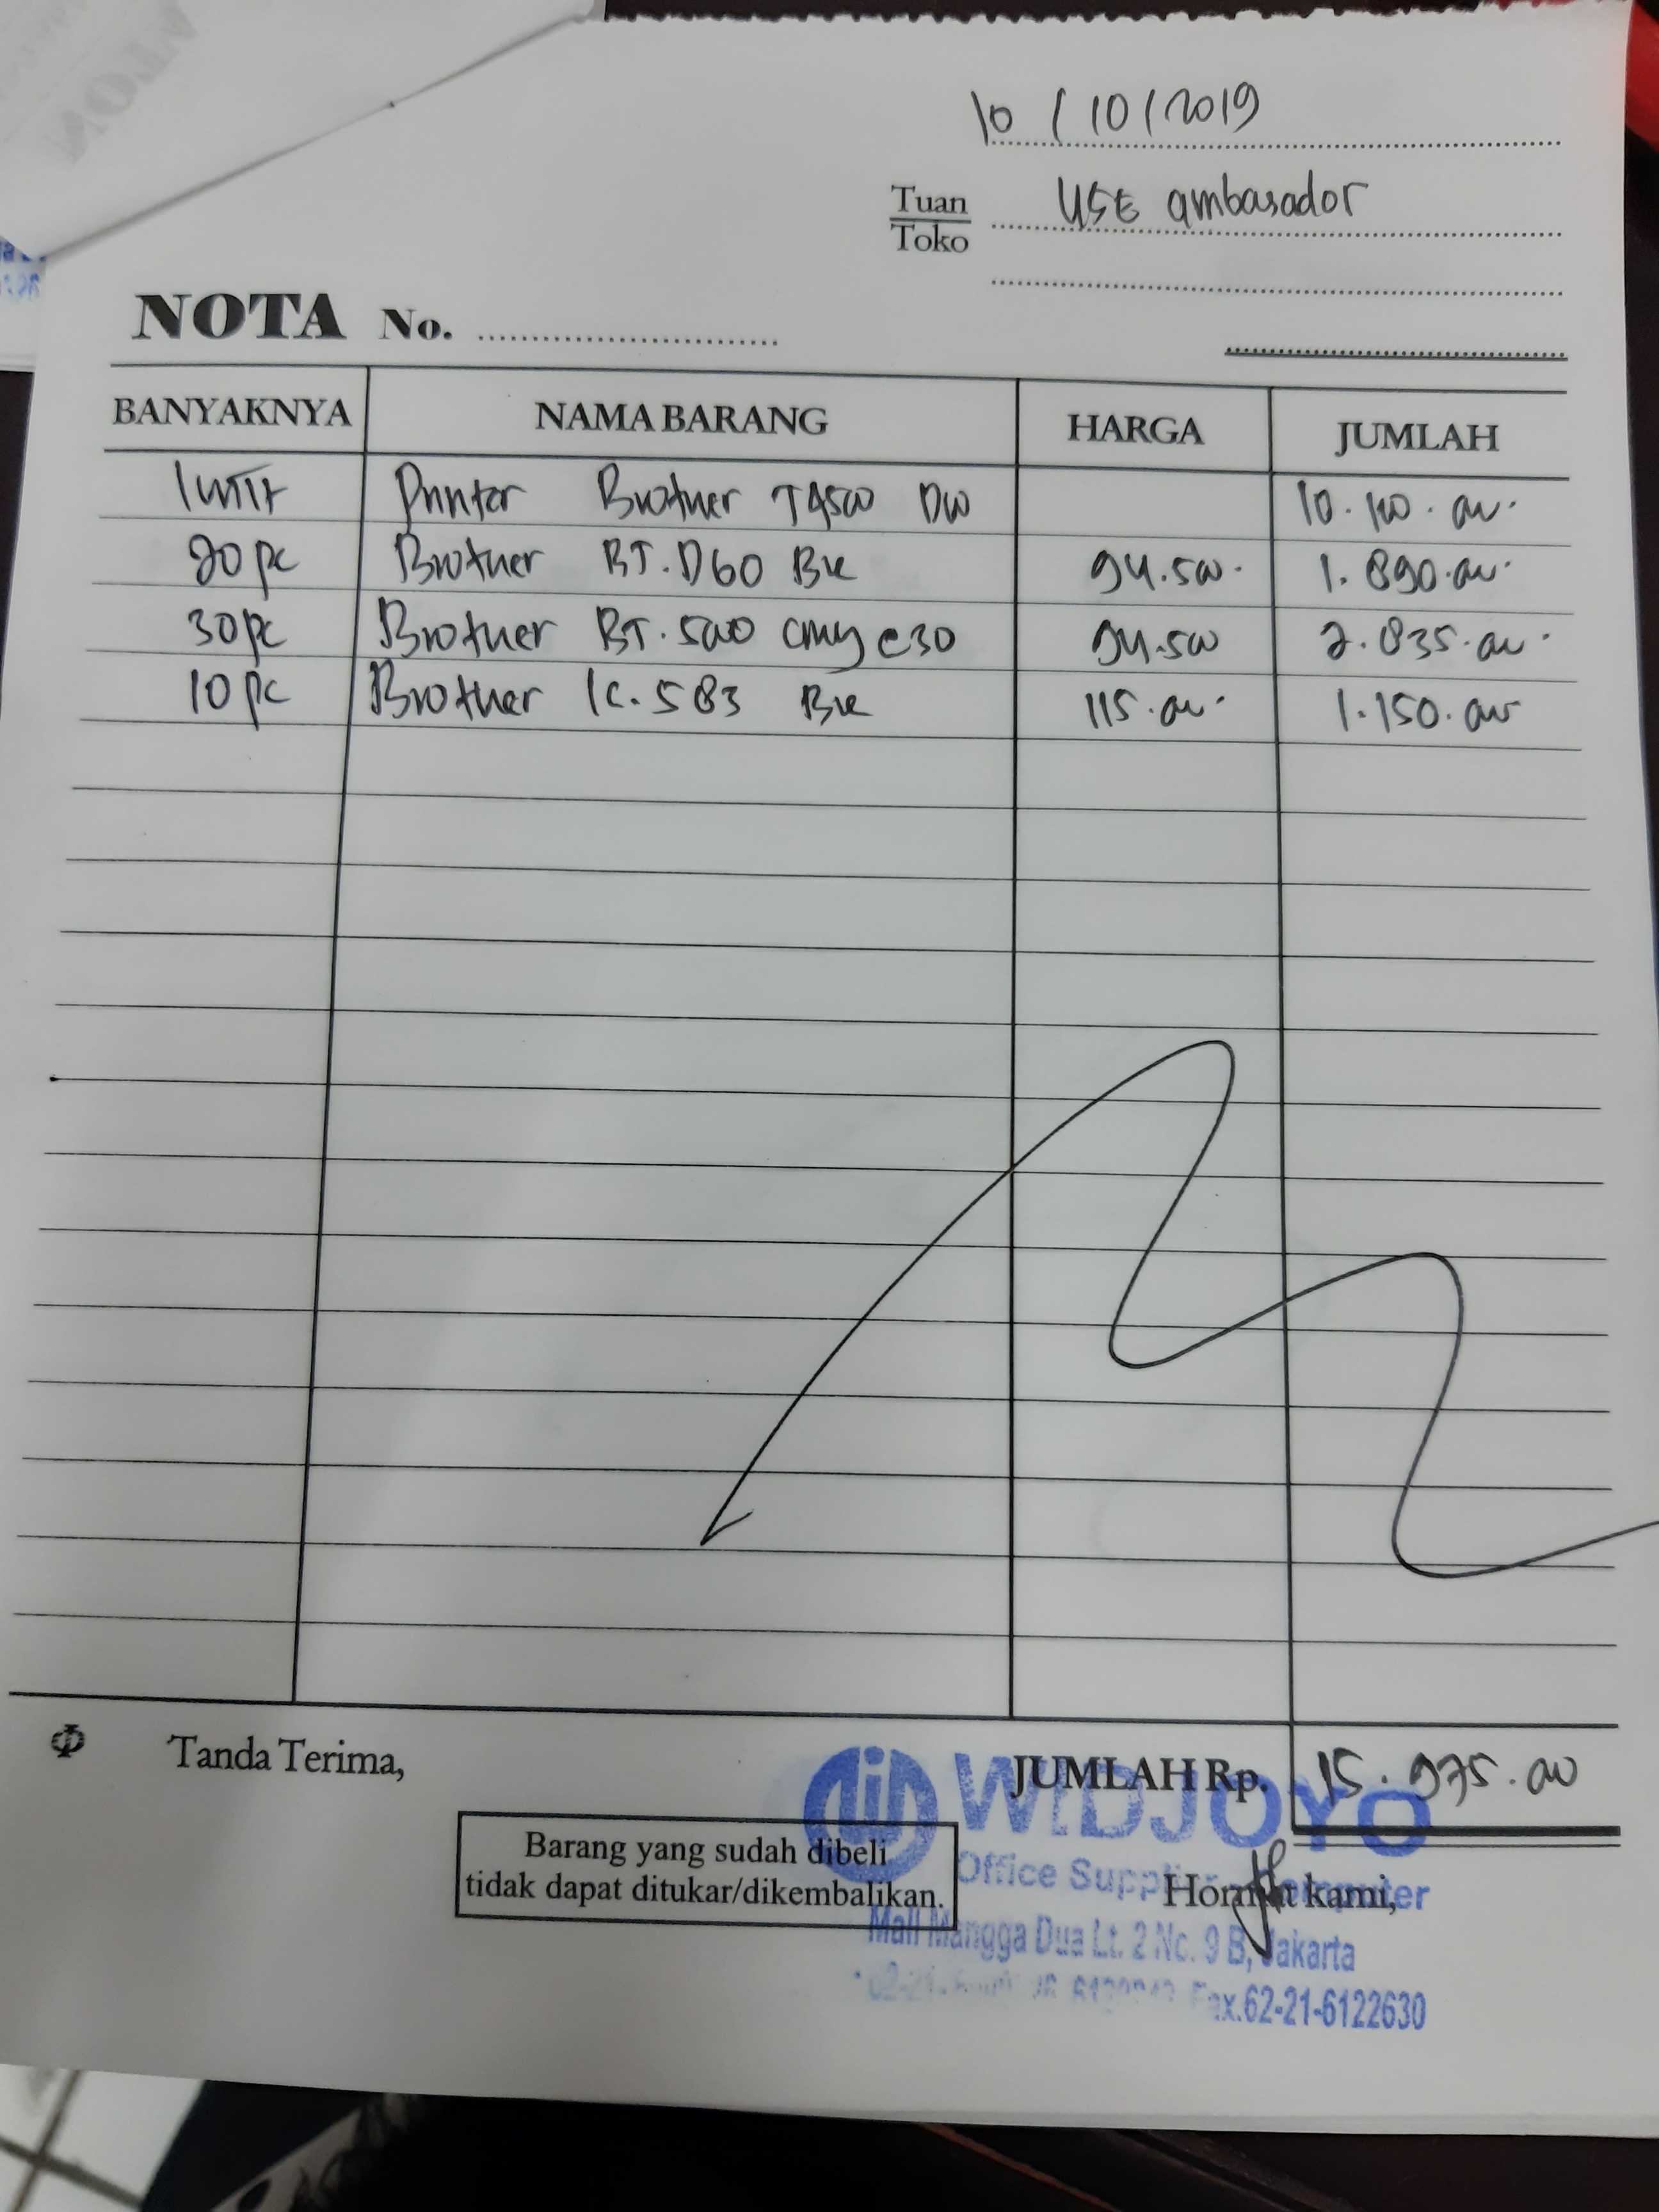 10 / 10 / 2019
Tuan
Toko
USE ambasador
NOTA No.
BANYAKNYA NAMA BARANG HARGA JUMLAH
1 unit Printer Brother T4500 DW 10.100.000
20 pc Brother BT.D60 BK 94.500 1.890.000
30 pc Brother BT.5000 cmy @30 94.500 2.835.000
10 pc Brother LC.583 BK 115.000 1.150.000
Tanda Terima, JUMLAH Rp. 15.975.000
WIDJOYO
Barang yang sudah dibeli
tidak dapat ditukar/dikembalikan.
Office Supplier Computer
Hormat kami,
Mall Mangga Dua Lt. 2 No. 9 B, Jakarta
Fax.62-21-6122630